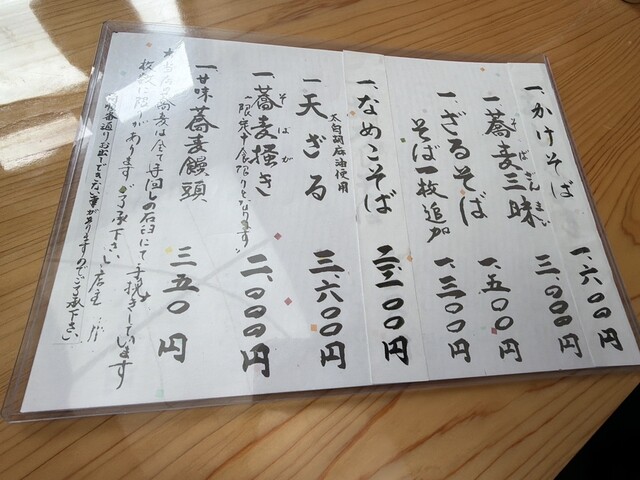 一、かけそば 一、六〇〇円
一、蕎麦三昧 三、〇〇〇円
そばざんまい
一、ざるそば 一、五〇〇円
そば一枚追加 一、三〇〇円
一、なめこそば 二、一〇〇円
太白胡麻油使用
一、天ざる 三、六〇〇円
一、蕎麦掻き 二、〇〇〇円
そばがき
一、甘味 蕎麦饅頭 三五〇円
当店の蕎麦は全て手回しの石臼にて手挽きしています
枚数に限りがあります ご了承下さい 店主
順番通りお出しできない事がありますのでご了承下さい